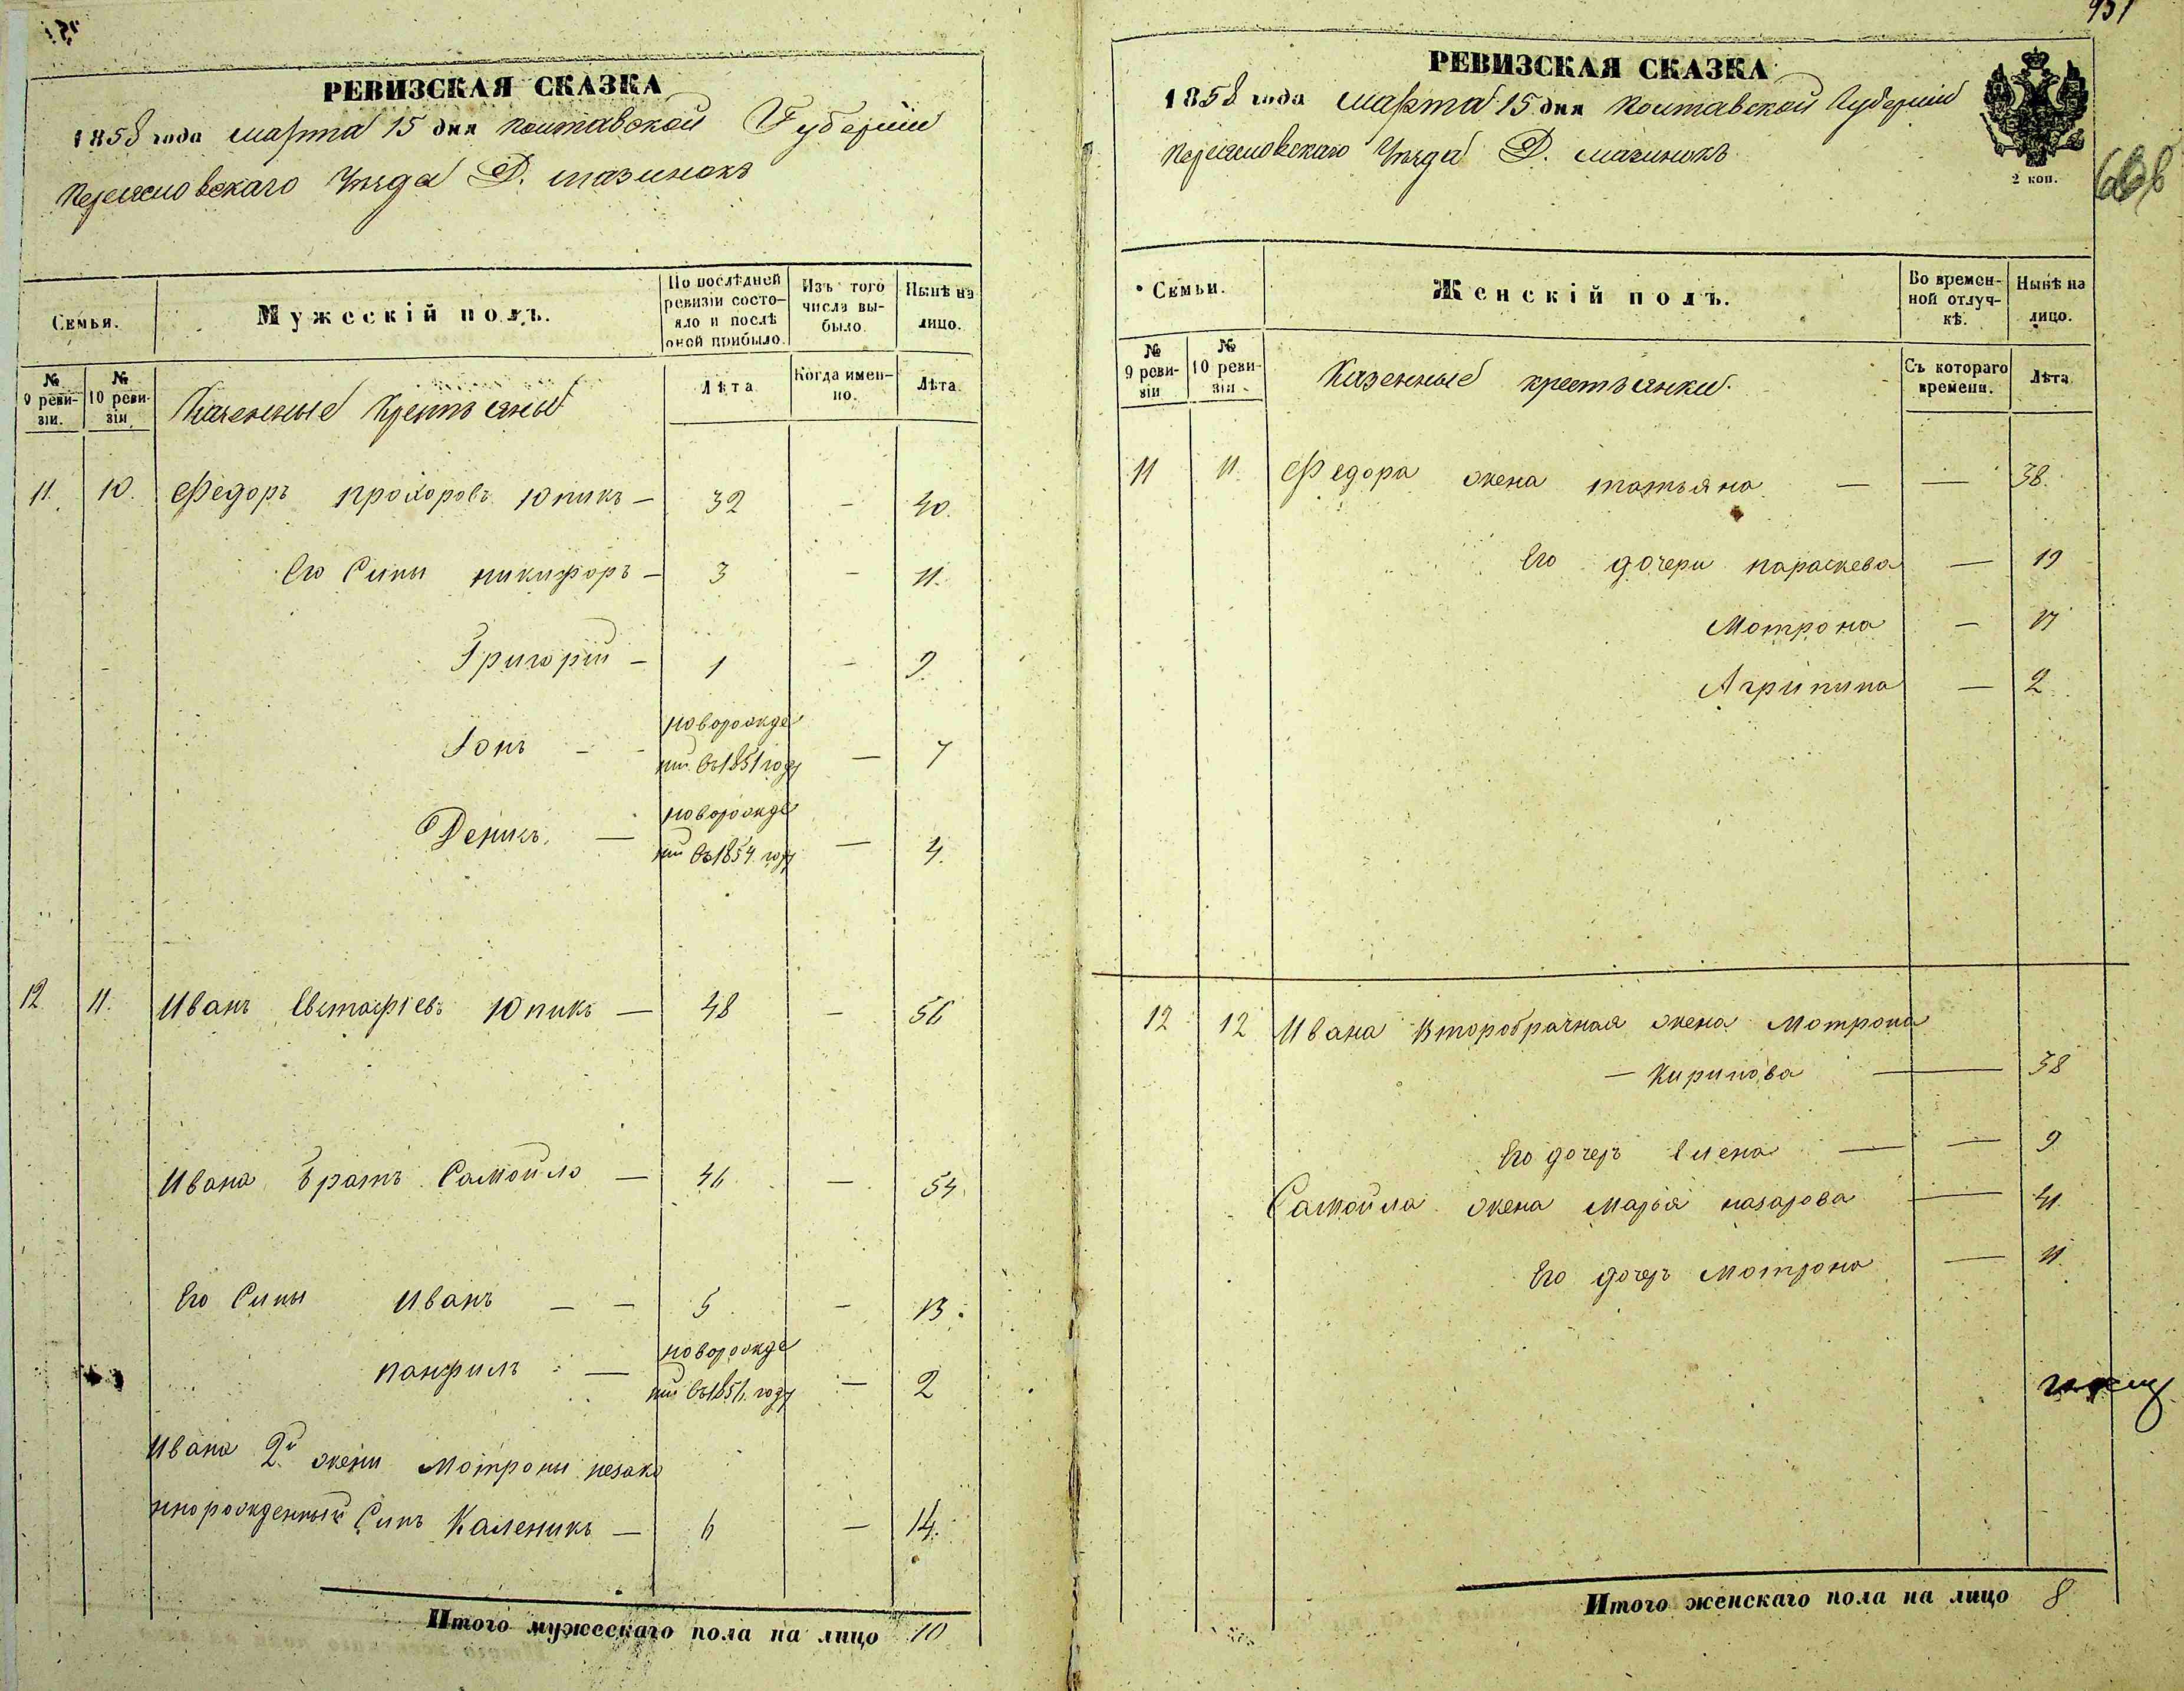 РЕВИЗСКАЯ СКАЗКА
1858 года марта 15 дня Полтавской Губернии
Переяславскаго Уезда Д. Мазинокъ
Семьи.
Мужескій полъ.
По послѣдней ревизіи состояло и послѣ оной прибыло.
Изъ того числа выбыло.
Нынѣ на лицо.
№ 9 ревизіи.
№ 10 ревизіи
Казенные Крестьяны
Лѣта
Когда именно.
Лѣта.
11. 10. Федоръ Прохоровъ Юпикъ — 32 — 40.
Его Сины Никифоръ — 3 — 11.
Григорій — 1 — 9
Іонъ — - новорожде
ний въ 1851 году — 7
Денисъ. — новорожде
ний въ 1854 году — 4.
12 11. Иванъ Евстафіевъ Юпикъ — 48 — 56
Ивана братъ Самойло — 46 — 54
Его Сины Иванъ — — 5 — 13.
Панфилъ — новорожде
ний въ 1856 году — 2
Ивана 2й жени Мотроны незако
ннорожденный Синъ Каленикъ — 6 — 14.
Итого мужескаго пола на лицо 10
951
РЕВИЗСКАЯ СКАЗКА
1858 года марта 15 дня Полтавской Губернии
Переяславскаго Уезда Д. Мазинокъ
2 коп.
Семьи.
Женскій полъ.
Во временной отлучкѣ.
Нынѣ на лицо.
№ 9 ревизіи
№ 10 ревизіи
Казенные крестьянки.
Съ котораго времени.
Лѣта
11 11. Федора жена Татьяна — — 38.
Его дочери Параскева — 19
Мотрона — 17
Агрипина — 2.
12 12 Ивана Второбрачная жена Мотрона
— Кирилова — 38
Его дочеръ Елена — — 9
Самойла жена Марья Назарова — 41.
Его дочеръ Мотрона — 11.
Итого женскаго пола на лицо 8